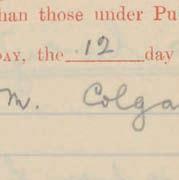 han those under Pu
DAY, the 12 day
m. Colga